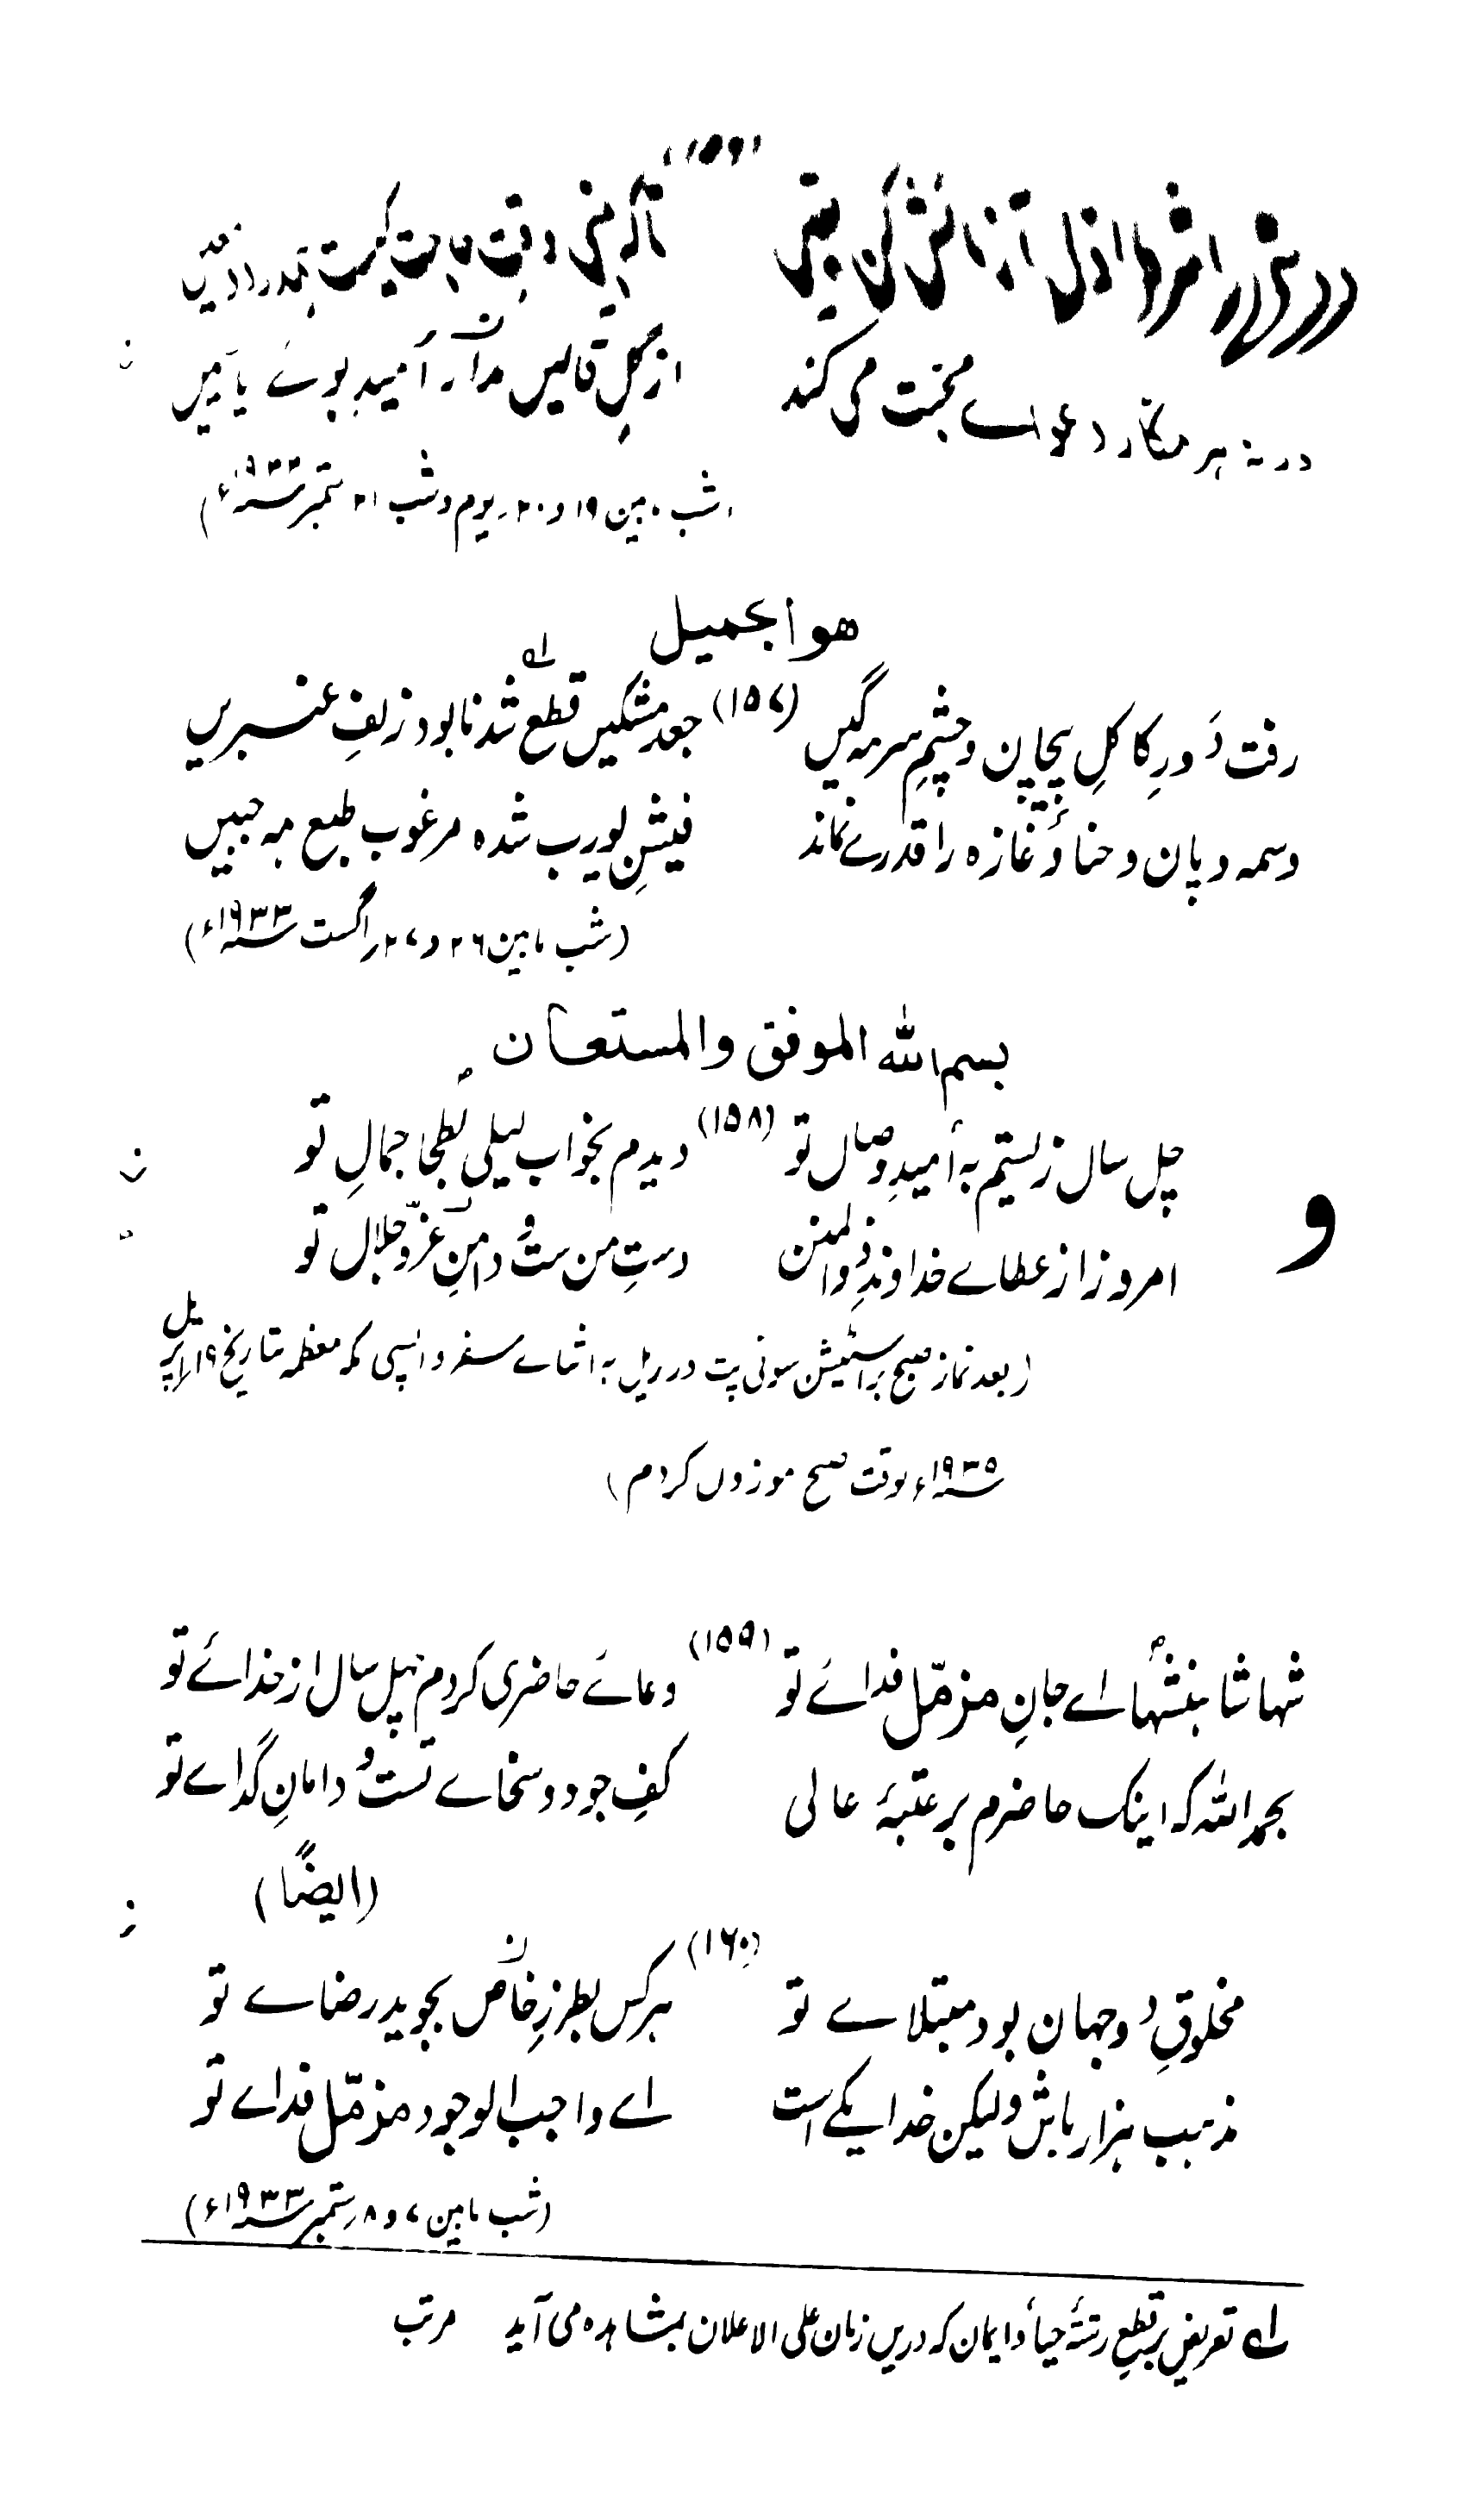 (۱۵۶)
از گل قالیں مدار اُمیدِ بوے یاسمیں
شب مابین ۱۹ و ۲۰ و یوم و شب ۲۱ ستمبر ۱۹۳۳ء)
هو الجميل
رفت دَورِ کاکلِ پیچان و چشمِ سرمہ گیں (۱۵۷) جعدِ مشکیں قطع شد نابود زلفِ عنبریں
وسمہ و پان و حنا و غازہ را قدرے نماند فیشنِ یورپ شدہ مرغوب طبع مہ جبیں
(شب مابین ۲۶ و ۲۷ اگست ۱۹۳۳ء)
بسم الله الموفق والمستعان
چل سال زیستیم بہ اُمیدِ وصال تو (۱۵۸) دیدم بخواب لیلیِ بطحا جمالِ تو
امروز از عطاے خداوندِ ذوالمنن دستِ من ست و دامنِ عزّ و جلال تو
(بعد نماز صبح بر اسٹیشن سونی پت در ریل بہ اثناے سفر واپسی مکہ معظمہ بتاریخ ۱۹ اپریل
۱۹۳۵ء بوقت صبح موزوں کردم)
شہا شاہنشہا اے جانِ مزمّل فداے تو (۱۵۹) دعاے حاضری کردم چہل سال از خداے تو
بحمد اللہ کہ اینک حاضرم بر عتبۂ عالی کفِ جود و سخاے تست و دامانِ گداے تو
(ایضًا)
مخلوقِ دو جہان بود مبتلاے تو (۱۶۰) ہر کس بطرزِ خاص بجوید رضاے تو
مذہب ہزار باش و لیکن خدا یکے است اے واجب الوجود مزمّل فداے تو
(شب مابین ۷ و ۸ ستمبر ۱۹۳۳ء)
لہ تعریض بر قطع رشتۂ حیا و ایمان کہ دریں زمان علی الاعلان بمشاہدہ می آید مرتب